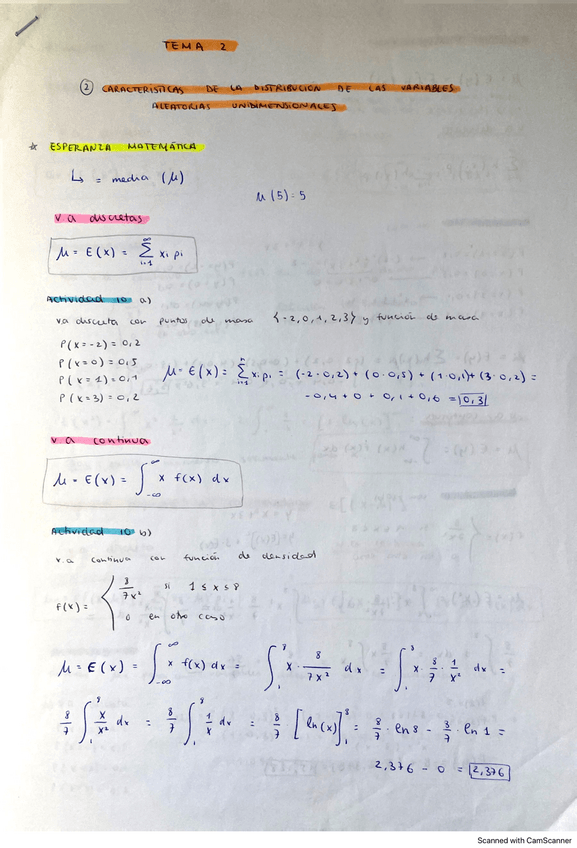 TEMA 2
② CARACTERÍSTICAS DE LA DISTRIBUCIÓN DE LAS VARIABLES
ALEATORIAS UNIDIMENSIONALES
☆ ESPERANZA MATEMÁTICA
↳ = media (μ)
μ(5)=5
v a discretas
μ = E(x) = ∑_{i=1}^{∞} xi pi
Actividad 10 a)
v.a discreta con puntos de masa {-2,0,1,2,3} y función de masa
P(x=-2)=0,2
P(x=0)=0,5
P(x=1)=0,1
P(x=3)=0,2
μ = E(x) = ∑_{i=1}^{n} xi pi = (-2·0,2) + (0·0,5) + (1·0,1) + (3·0,2) =
-0,4 + 0 + 0,1 + 0,6 = 0,3
v a continua
μ = E(x) = ∫_{-∞}^{∞} x f(x) dx
Actividad 10 b)
v.a continua con función de densidad
f(x) = { 8/7x² si 1 ≤ x ≤ 8
0 en otro caso
μ = E(x) = ∫_{-∞}^{∞} x f(x) dx = ∫_{1}^{8} x · 8/7x² dx = ∫_{1}^{8} x · 8/7 · 1/x² dx =
8/7 ∫_{1}^{8} x/x² dx = 8/7 ∫_{1}^{8} 1/x dx = 8/7 [ln(x)]_{1}^{8} = 8/7 · ln 8 - 8/7 · ln 1 =
2,376 - 0 = 2,376
Scanned with CamScanner